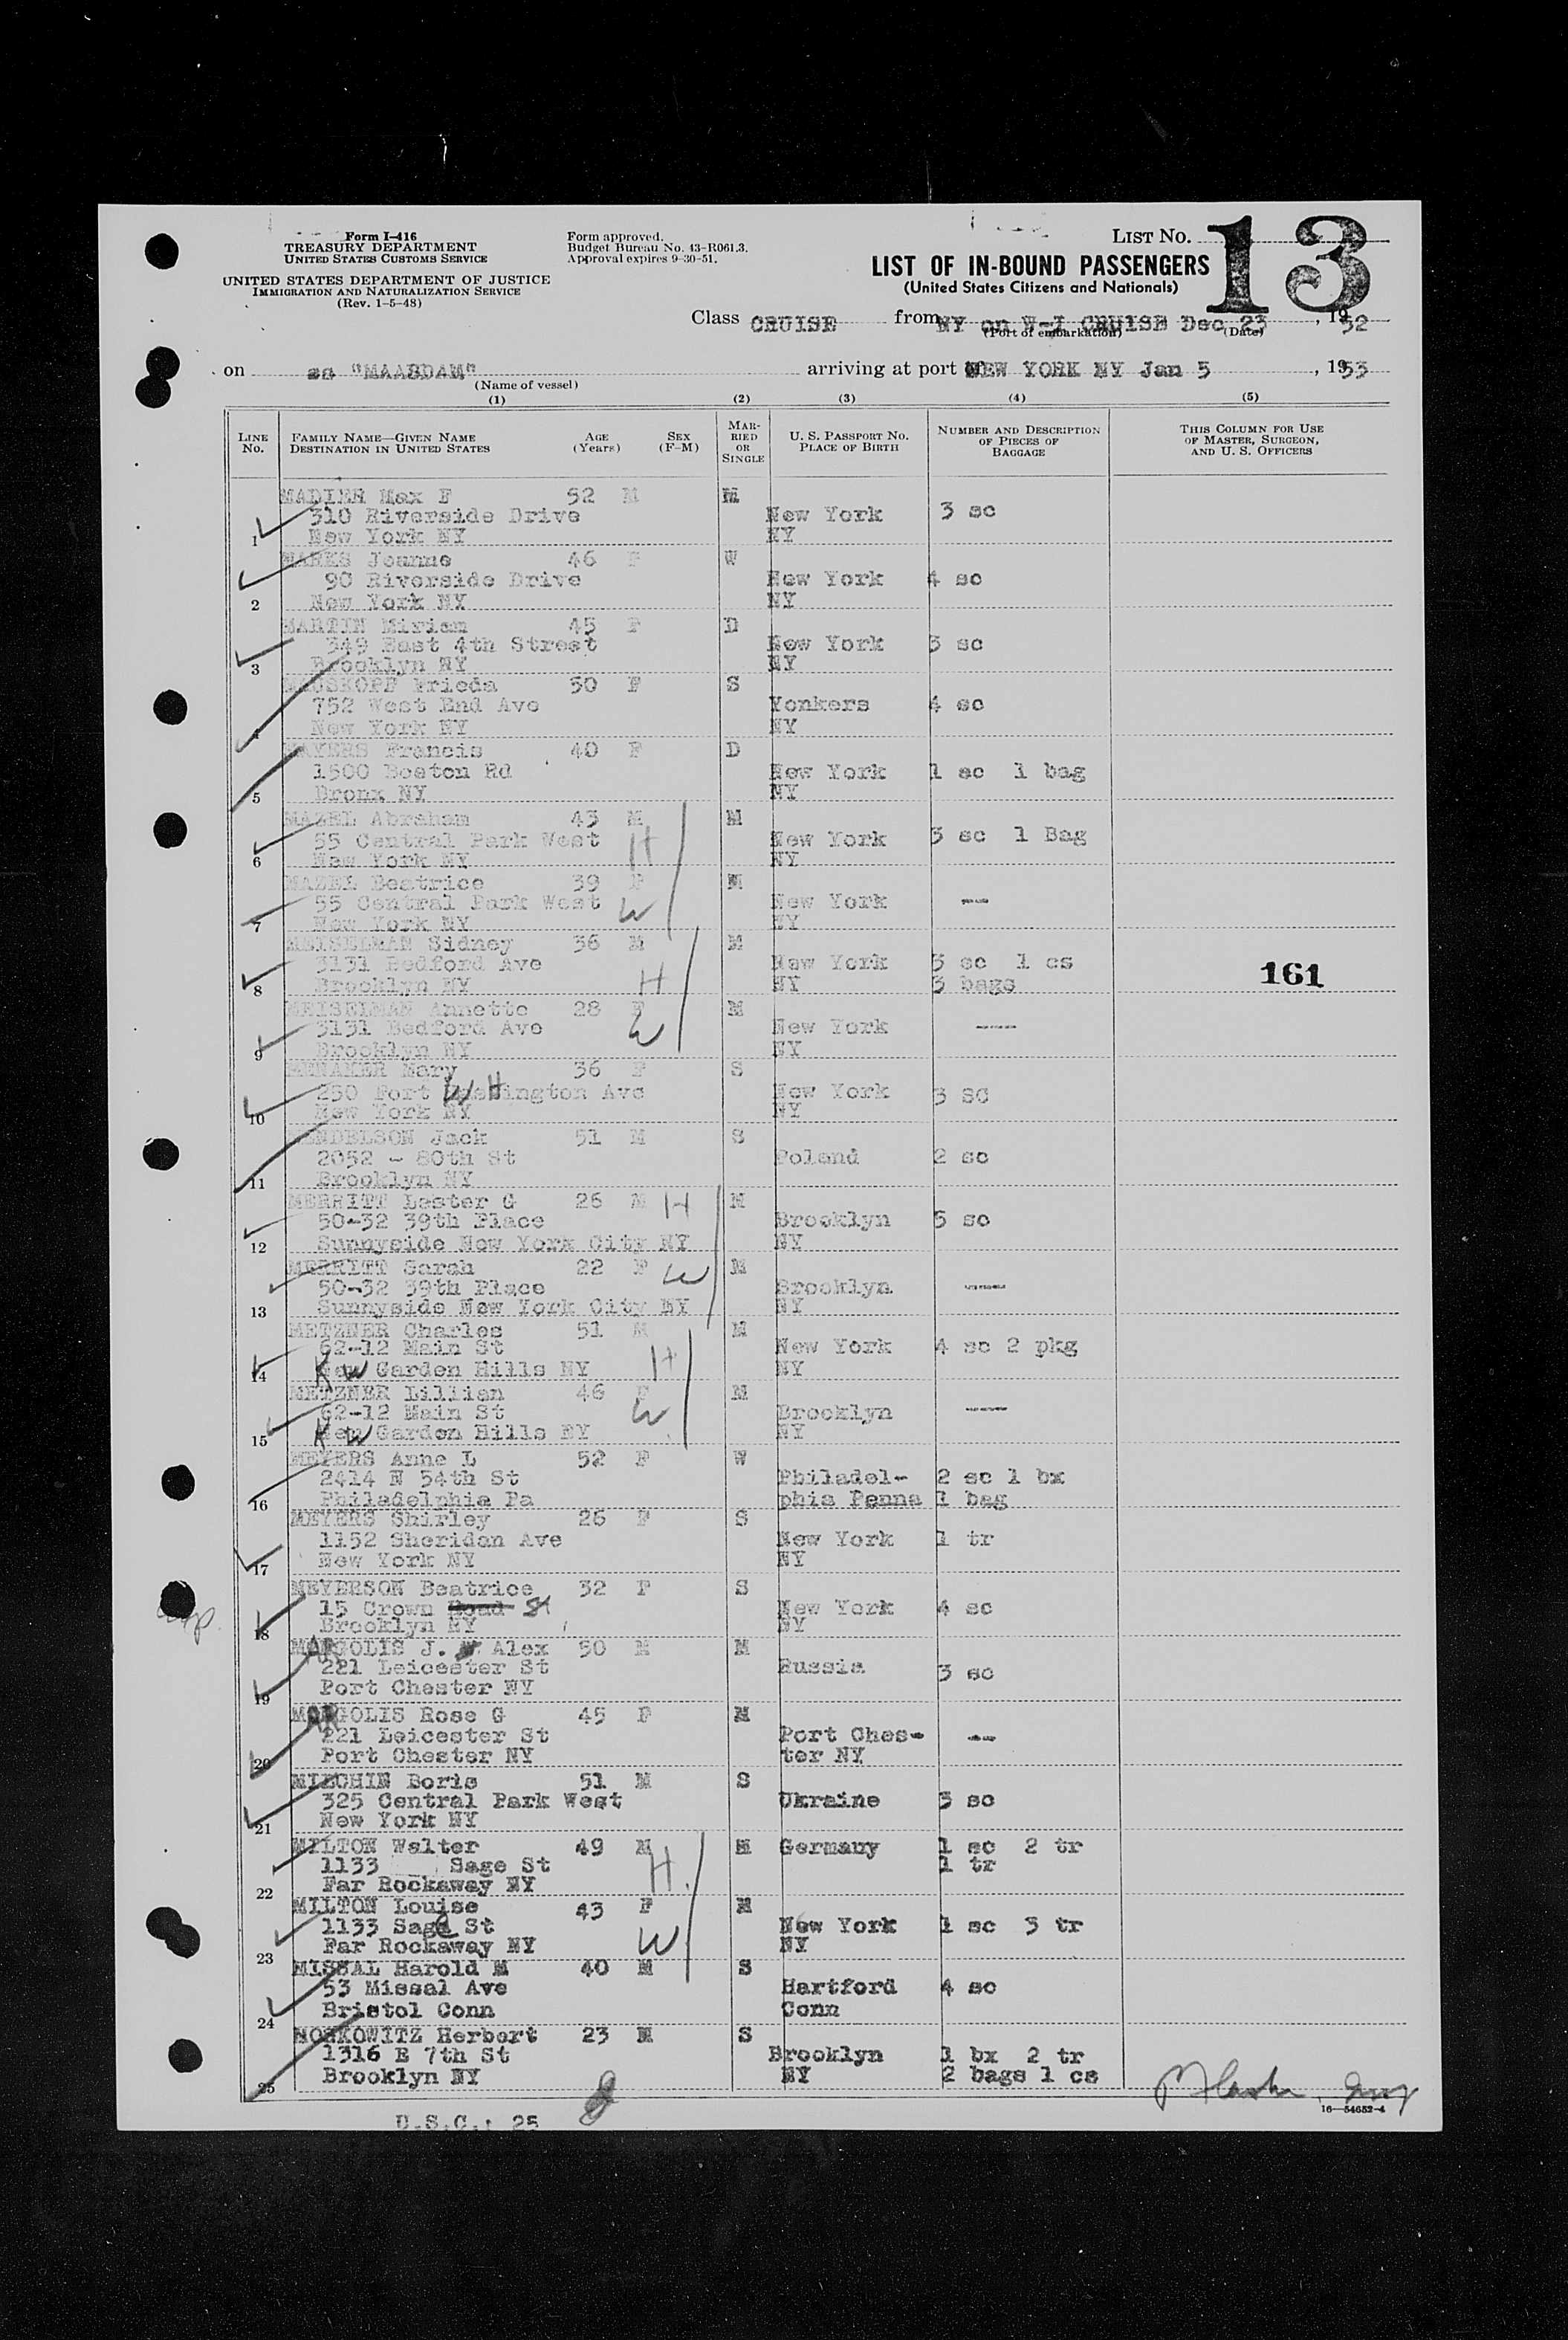 Form I-416
TREASURY DEPARTMENT
UNITED STATES CUSTOMS SERVICE
UNITED STATES DEPARTMENT OF JUSTICE
IMMIGRATION AND NATURALIZATION SERVICE
(Rev. 1-5-48)
Form approved.
Budget Bureau No. 43-R061.3.
Approval expires 9-30-51.
LIST NO. 13
LIST OF IN-BOUND PASSENGERS
(United States Citizens and Nationals)
Class CRUISE from NY on W-I CRUISE Dec 23, 1952
(Port of embarkation) (Date)
on ss "MAASDAM" arriving at port NEW YORK NY Jan 5, 1953
(Name of vessel)
(1) (2) (3) (4) (5)
LINE NO.
FAMILY NAME—GIVEN NAME
DESTINATION IN UNITED STATES
AGE (Years)
SEX (F-M)
MARRIED OR SINGLE
U. S. PASSPORT NO.
PLACE OF BIRTH
NUMBER AND DESCRIPTION OF PIECES OF BAGGAGE
THIS COLUMN FOR USE OF MASTER, SURGEON, AND U. S. OFFICERS
MADIER Max F 52 M M
310 Riverside Drive New York 3 sc
1 New York NY NY
MARKS Jeanne 46 F W
90 Riverside Drive New York 4 sc
2 New York NY NY
MARTIN Miriam 45 F D
349 East 4th Street New York 3 sc
3 Brooklyn NY NY
MAUSKOPF Frieda 50 F S
752 West End Ave Yonkers 4 sc
4 New York NY NY
MAYERS Francis 40 F D
1500 Boston Rd New York 1 sc 1 bag
5 Bronx NY NY
MAZEL Abraham 43 M M
55 Central Park West H New York 3 sc 1 Bag
6 New York NY NY
MAZEL Beatrice 39 F M
55 Central Park West W New York ---
7 New York NY NY
MEISELMAN Sidney 36 M M
3131 Bedford Ave New York 3 sc 1 cs
8 Brooklyn NY H NY 3 bags 161
MEISELMAN Annette 28 F M
3131 Bedford Ave W New York ----
9 Brooklyn NY NY
MENAKER Mary 36 F S
250 Fort Washington Ave New York 3 sc
10 New York NY NY
MENDELSON Jack 51 M S
2052 - 80th St Poland 2 sc
11 Brooklyn NY
MERRITT Lester G 26 M H M
50-32 39th Place Brooklyn 5 sc
12 Sunnyside New York City NY NY
MERRITT Sarah 22 F W M
50-32 39th Place Brooklyn ----
13 Sunnyside New York City NY NY
METZNER Charles 51 M M
62-12 Main St New York 4 sc 2 pkg
14 Kew Garden Hills NY H NY
METZNER Lillian 46 F M
62-12 Main St W Brooklyn ----
15 Kew Garden Hills NY NY
MEYERS Anne L 52 F W
2414 N 54th St Philadel- 2 sc 1 bx
16 Philadelphia Pa phia Penna 1 bag
MEYERS Shirley 26 F S
1152 Sheridan Ave New York 1 tr
17 New York NY NY
MEYERSON Beatrice 32 F S
15 Crown Road St New York 4 sc
18 Brooklyn NY NY
MARGOLIS J. Alex 50 M M
221 Leicester St Russia 3 sc
19 Port Chester NY
MARGOLIS Rose G 45 F M
221 Leicester St Port Ches- ---
20 Port Chester NY ter NY
MILCHIN Boris 51 M S
325 Central Park West Ukraine 3 sc
21 New York NY
MILTON Walter 49 M M Germany 1 sc 2 tr
1133 Sage St H 1 tr
22 Far Rockaway NY
MILTON Louise 43 F M
1133 Sage St New York 1 sc 3 tr
23 Far Rockaway NY W NY
MISSAL Harold M 40 M S
53 Missal Ave Hartford 4 sc
24 Bristol Conn Conn
MOSKOWITZ Herbert 23 M S
1316 E 7th St Brooklyn 1 bx 2 tr
25 Brooklyn NY NY 2 bags 1 cs
16—54652-4
U.S.C.: 25